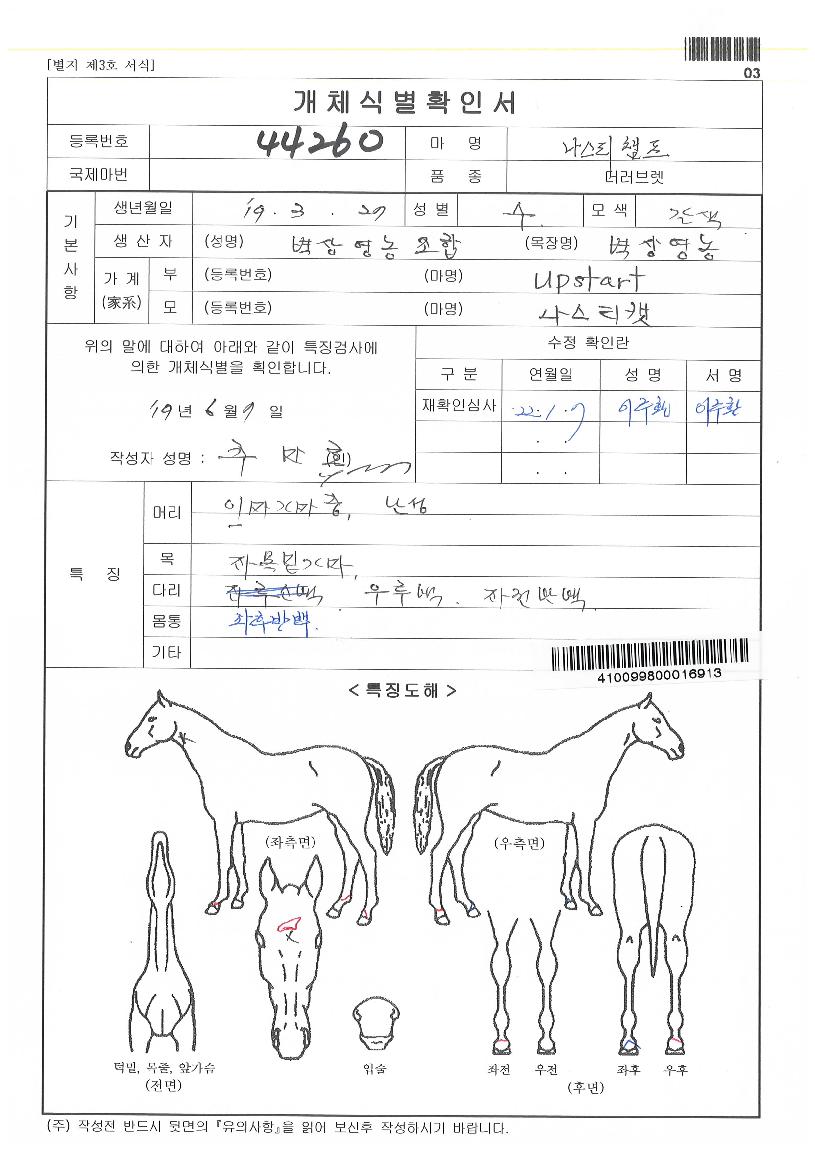 [별지 제3호 서식]
03
개체식별확인서
등록번호 44260 마 명 나스티챔프
국제마번 품 종 더러브렛
기본사항
생년월일 '19. 3. 27 성별 수 모색 갈색
생 산 자 (성명) 벽상영농조합 (목장명) 벽상영농
가 계 (家系)
부 (등록번호) (마명) Upstart
모 (등록번호) (마명) 나스티캣
위의 말에 대하여 아래와 같이 특징검사에
의한 개체식별을 확인합니다.
'19년 6월 9일
작성자 성명 : (인)
수정 확인란
구 분 연월일 성 명 서 명
재확인심사 22.1.9 이주환 이주환
. .
. .
특 징
머리
목
다리 우후백.
몸통 좌후반백.
기타
410099800016913
<특징도해>
(좌측면) (우측면)
턱밑, 목줄, 앞가슴
(전면)
입술
좌전 우전 좌후 우후
(후면)
(주) 작성전 반드시 뒷면의 『유의사항』을 읽어 보신후 작성하시기 바랍니다.